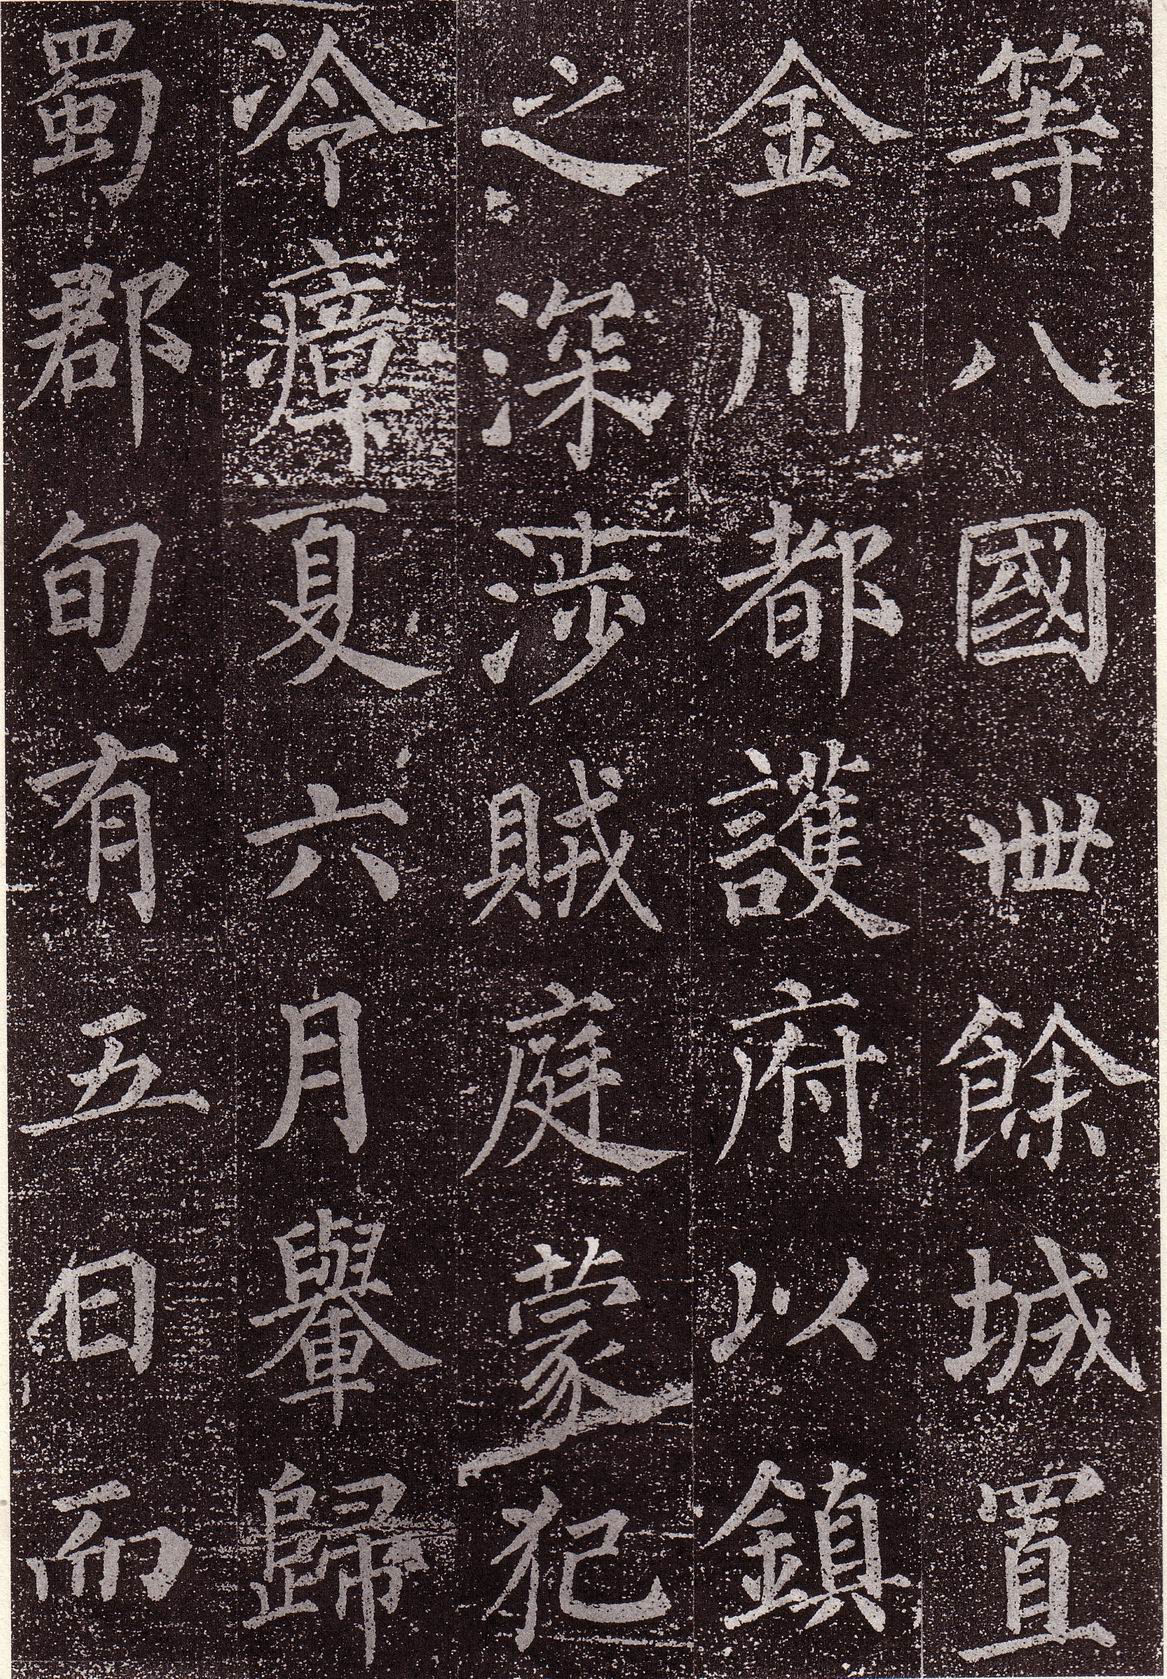 等八國卌餘城置
金川都護府以鎮
之深涉賊庭蒙犯
冷瘴夏六月轝歸
蜀郡旬有五日而